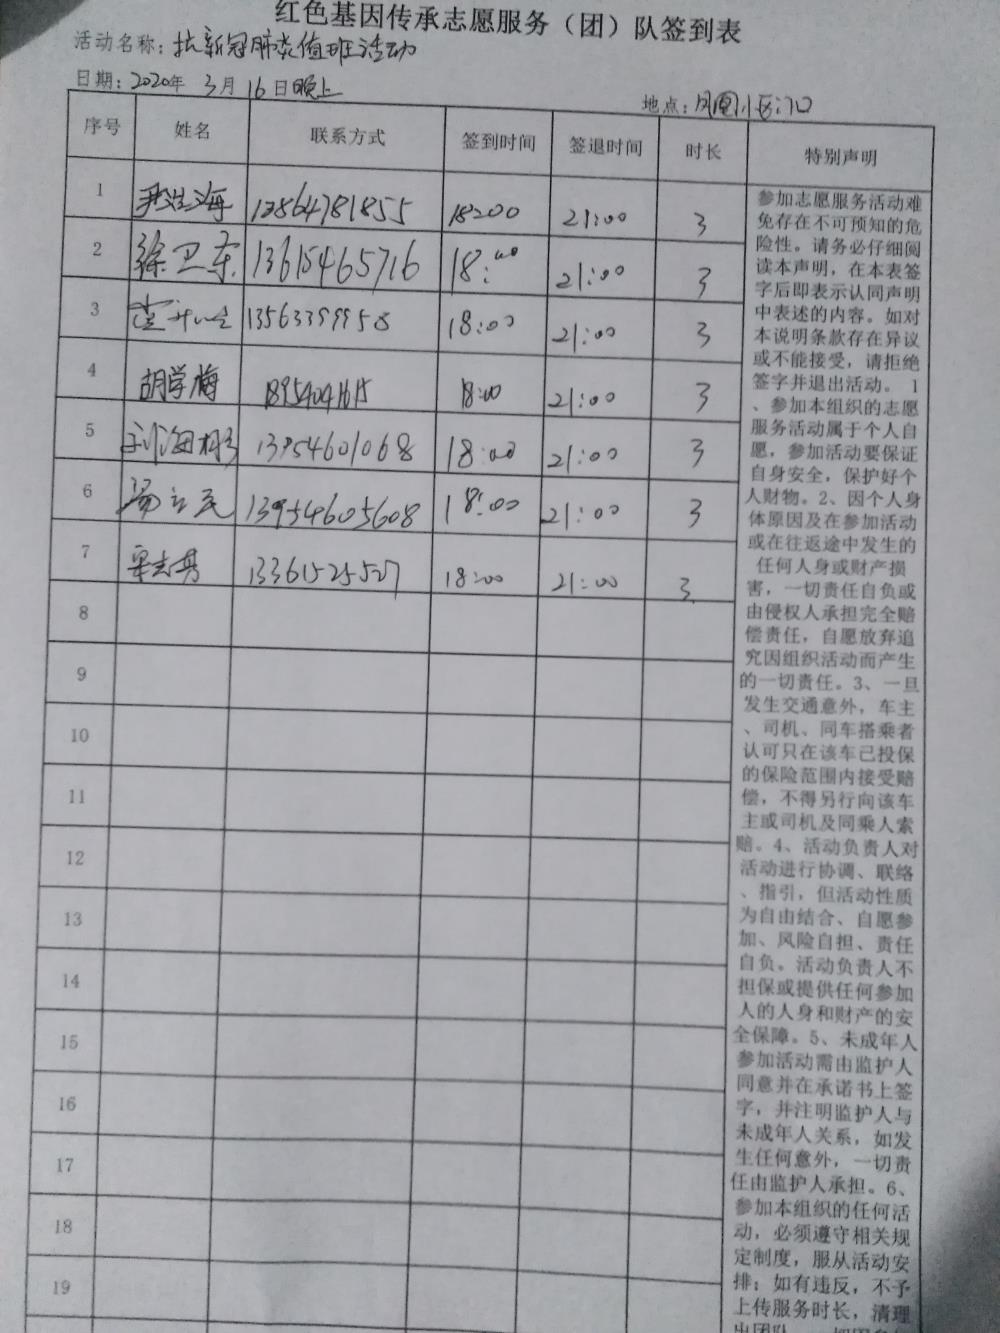 红色基因传承志愿服务（团）队签到表
活动名称：抗新冠肺炎值班活动
日期：2020年 3月 16日晚上
地点：凤凰小区门口
序号 姓名 联系方式 签到时间 签退时间 时长 特别声明
1 13864781855 18:00 21:00 3
2 徐卫东 13615465716 18:00 21:00 3
3 13563399958 18:00 21:00 3
4 胡学梅 18954041615 18:00 21:00 3
5 刘海彬 13954601068 18:00 21:00 3
6 杨立民 13954605608 18:00 21:00 3
7 13361525527 18:00 21:00 3
8
9
10
11
12
13
14
15
16
17
18
19
参加志愿服务活动难
免存在不可预知的危
险性。请务必仔细阅
读本声明，在本表签
字后即表示认同声明
中表述的内容。如对
本说明条款存在异议
或不能接受，请拒绝
签字并退出活动。1
、参加本组织的志愿
服务活动属于个人自
愿，参加活动要保证
自身安全，保护好个
人财物。2、因个人身
体原因及在参加活动
或在往返途中发生的
任何人身或财产损
害，一切责任自负或
由侵权人承担完全赔
偿责任，自愿放弃追
究因组织活动而产生
的一切责任。3、一旦
发生交通意外，车主
、司机、同车搭乘者
认可只在该车已投保
的保险范围内接受赔
偿，不得另行向该车
主或司机及同乘人索
赔。4、活动负责人对
活动进行协调、联络
、指引，但活动性质
为自由结合、自愿参
加、风险自担、责任
自负。活动负责人不
担保或提供任何参加
人的人身和财产的安
全保障。5、未成年人
参加活动需由监护人
同意并在承诺书上签
字，并注明监护人与
未成年人关系，如发
生任何意外，一切责
任由监护人承担。6、
参加本组织的任何活
动，必须遵守相关规
定制度，服从活动安
排；如有违反，不予
上传服务时长，清理
出团队